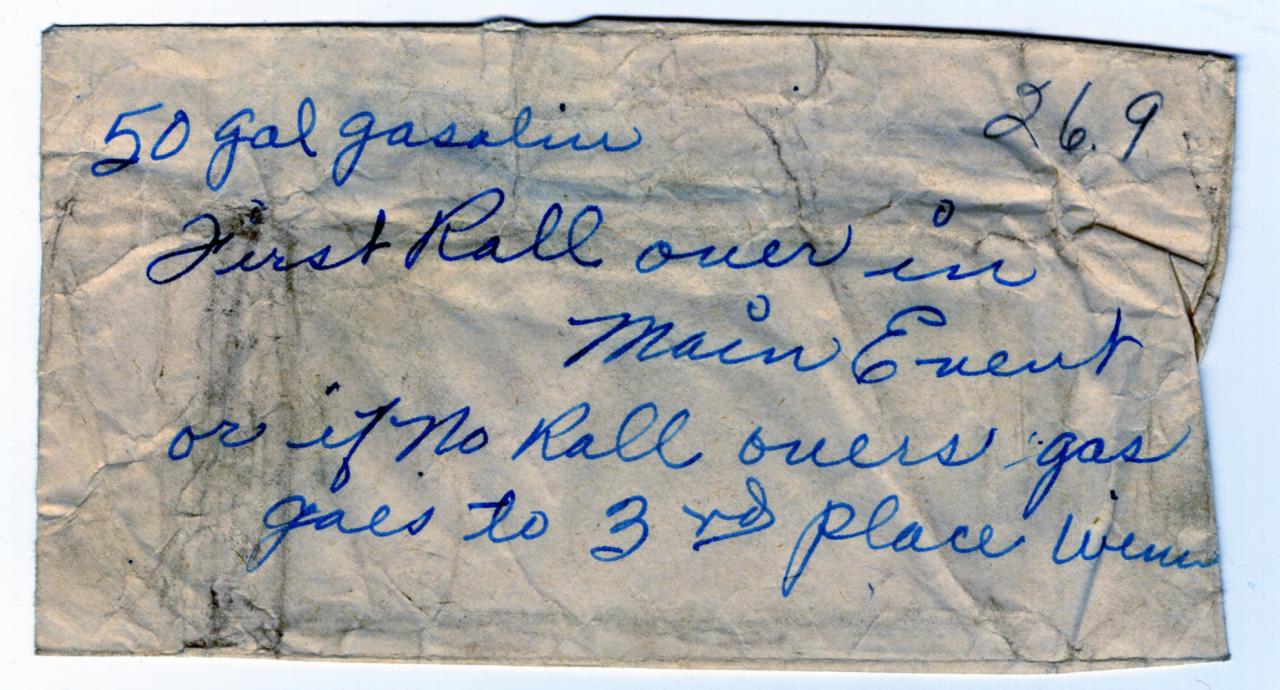 50 gal gasolin
26.9
First Roll over in
Main Event
or if No Roll overs gas
goes to 3rd place Winn